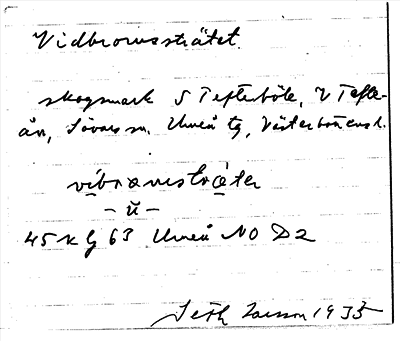 Vidbrownsstråtet.
skogsmark S Tefterböle, V Tefte-
ån, Sävars sn. Umeå tg, Västerbottens l.
- ŭ -
45 K g 63 Umeå NO D2
Seth Larsson 1935